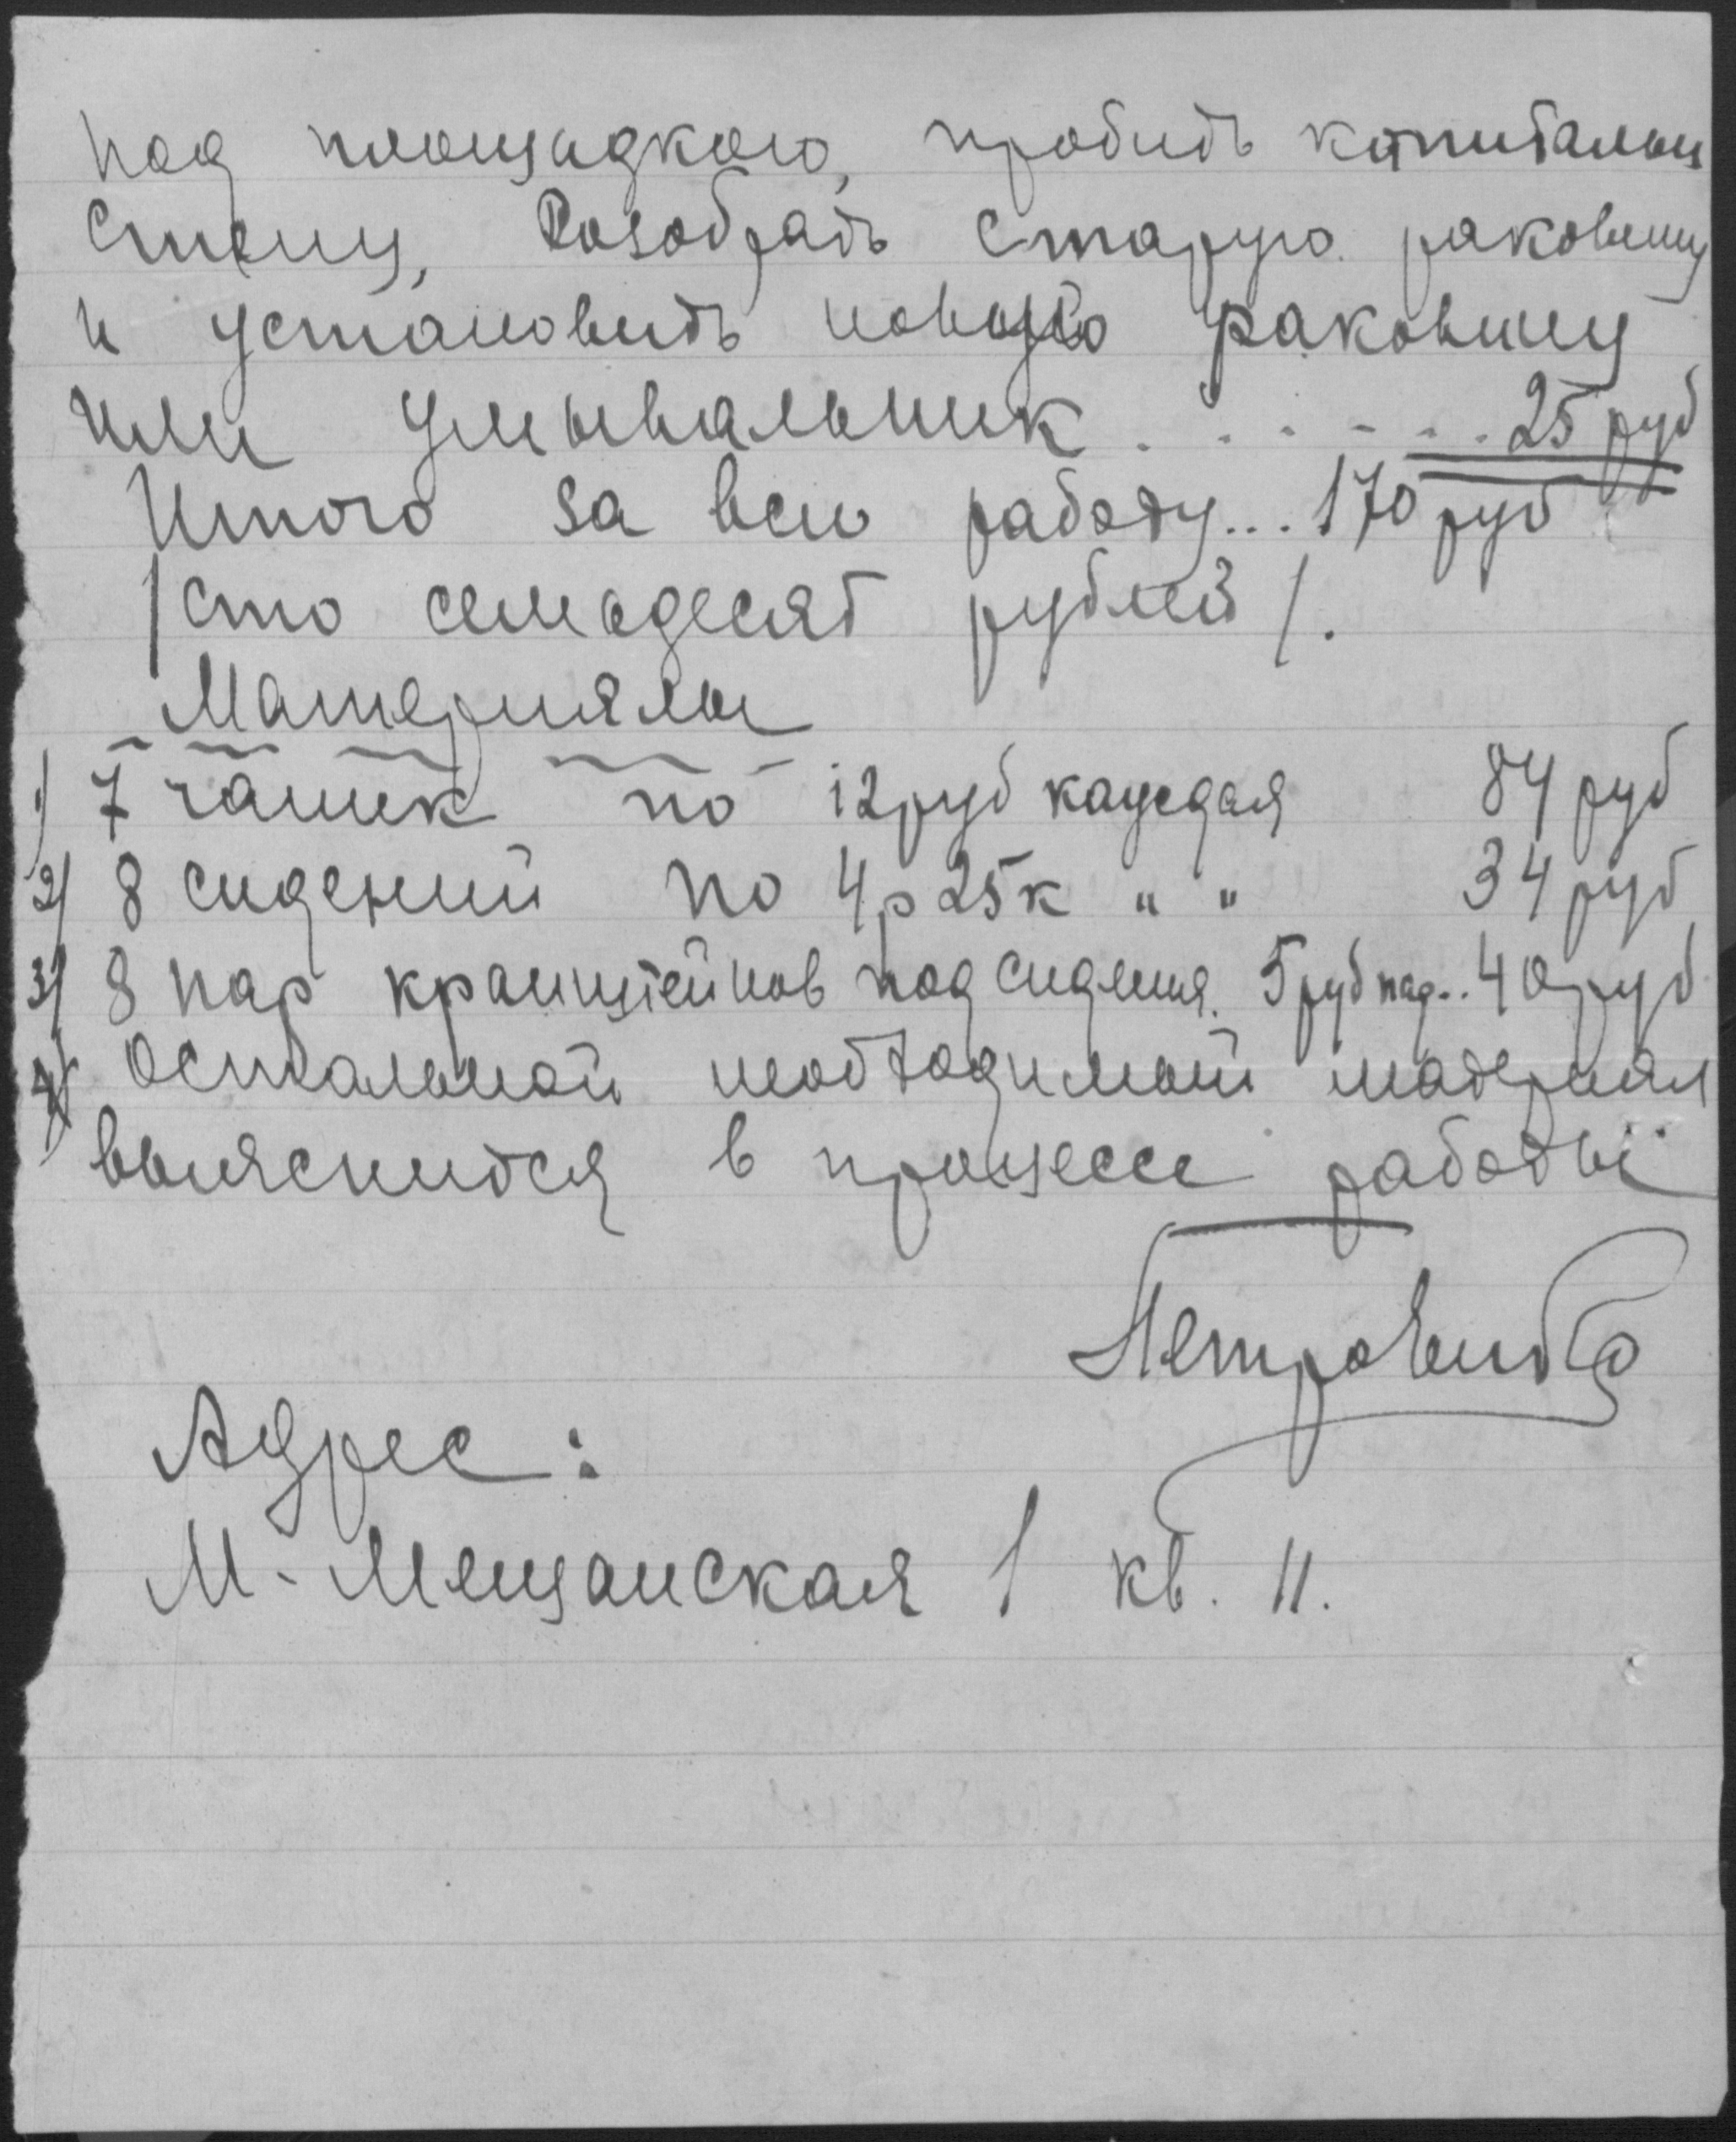 под площадкою, пробить капитальн
стену, Розобрать старую раковину
и установить новую раковину
или умывальник . . . - - . . 25 руб
Итого за всю работу... 170 руб
/ сто семьдесят рублей /.
Материялы
1) 7 чашек по 12 руб каждая 84 руб
2) 8 сидений по 4р 25к " " 34 руб
3) 8 пар кранштейнов под сидения. 5 руб пар.. 40 руб
4) Остальной необходимый материял
выяснится в процессе работы
Петровит
Адрес:
М-Мещанская 1 кв. 11.